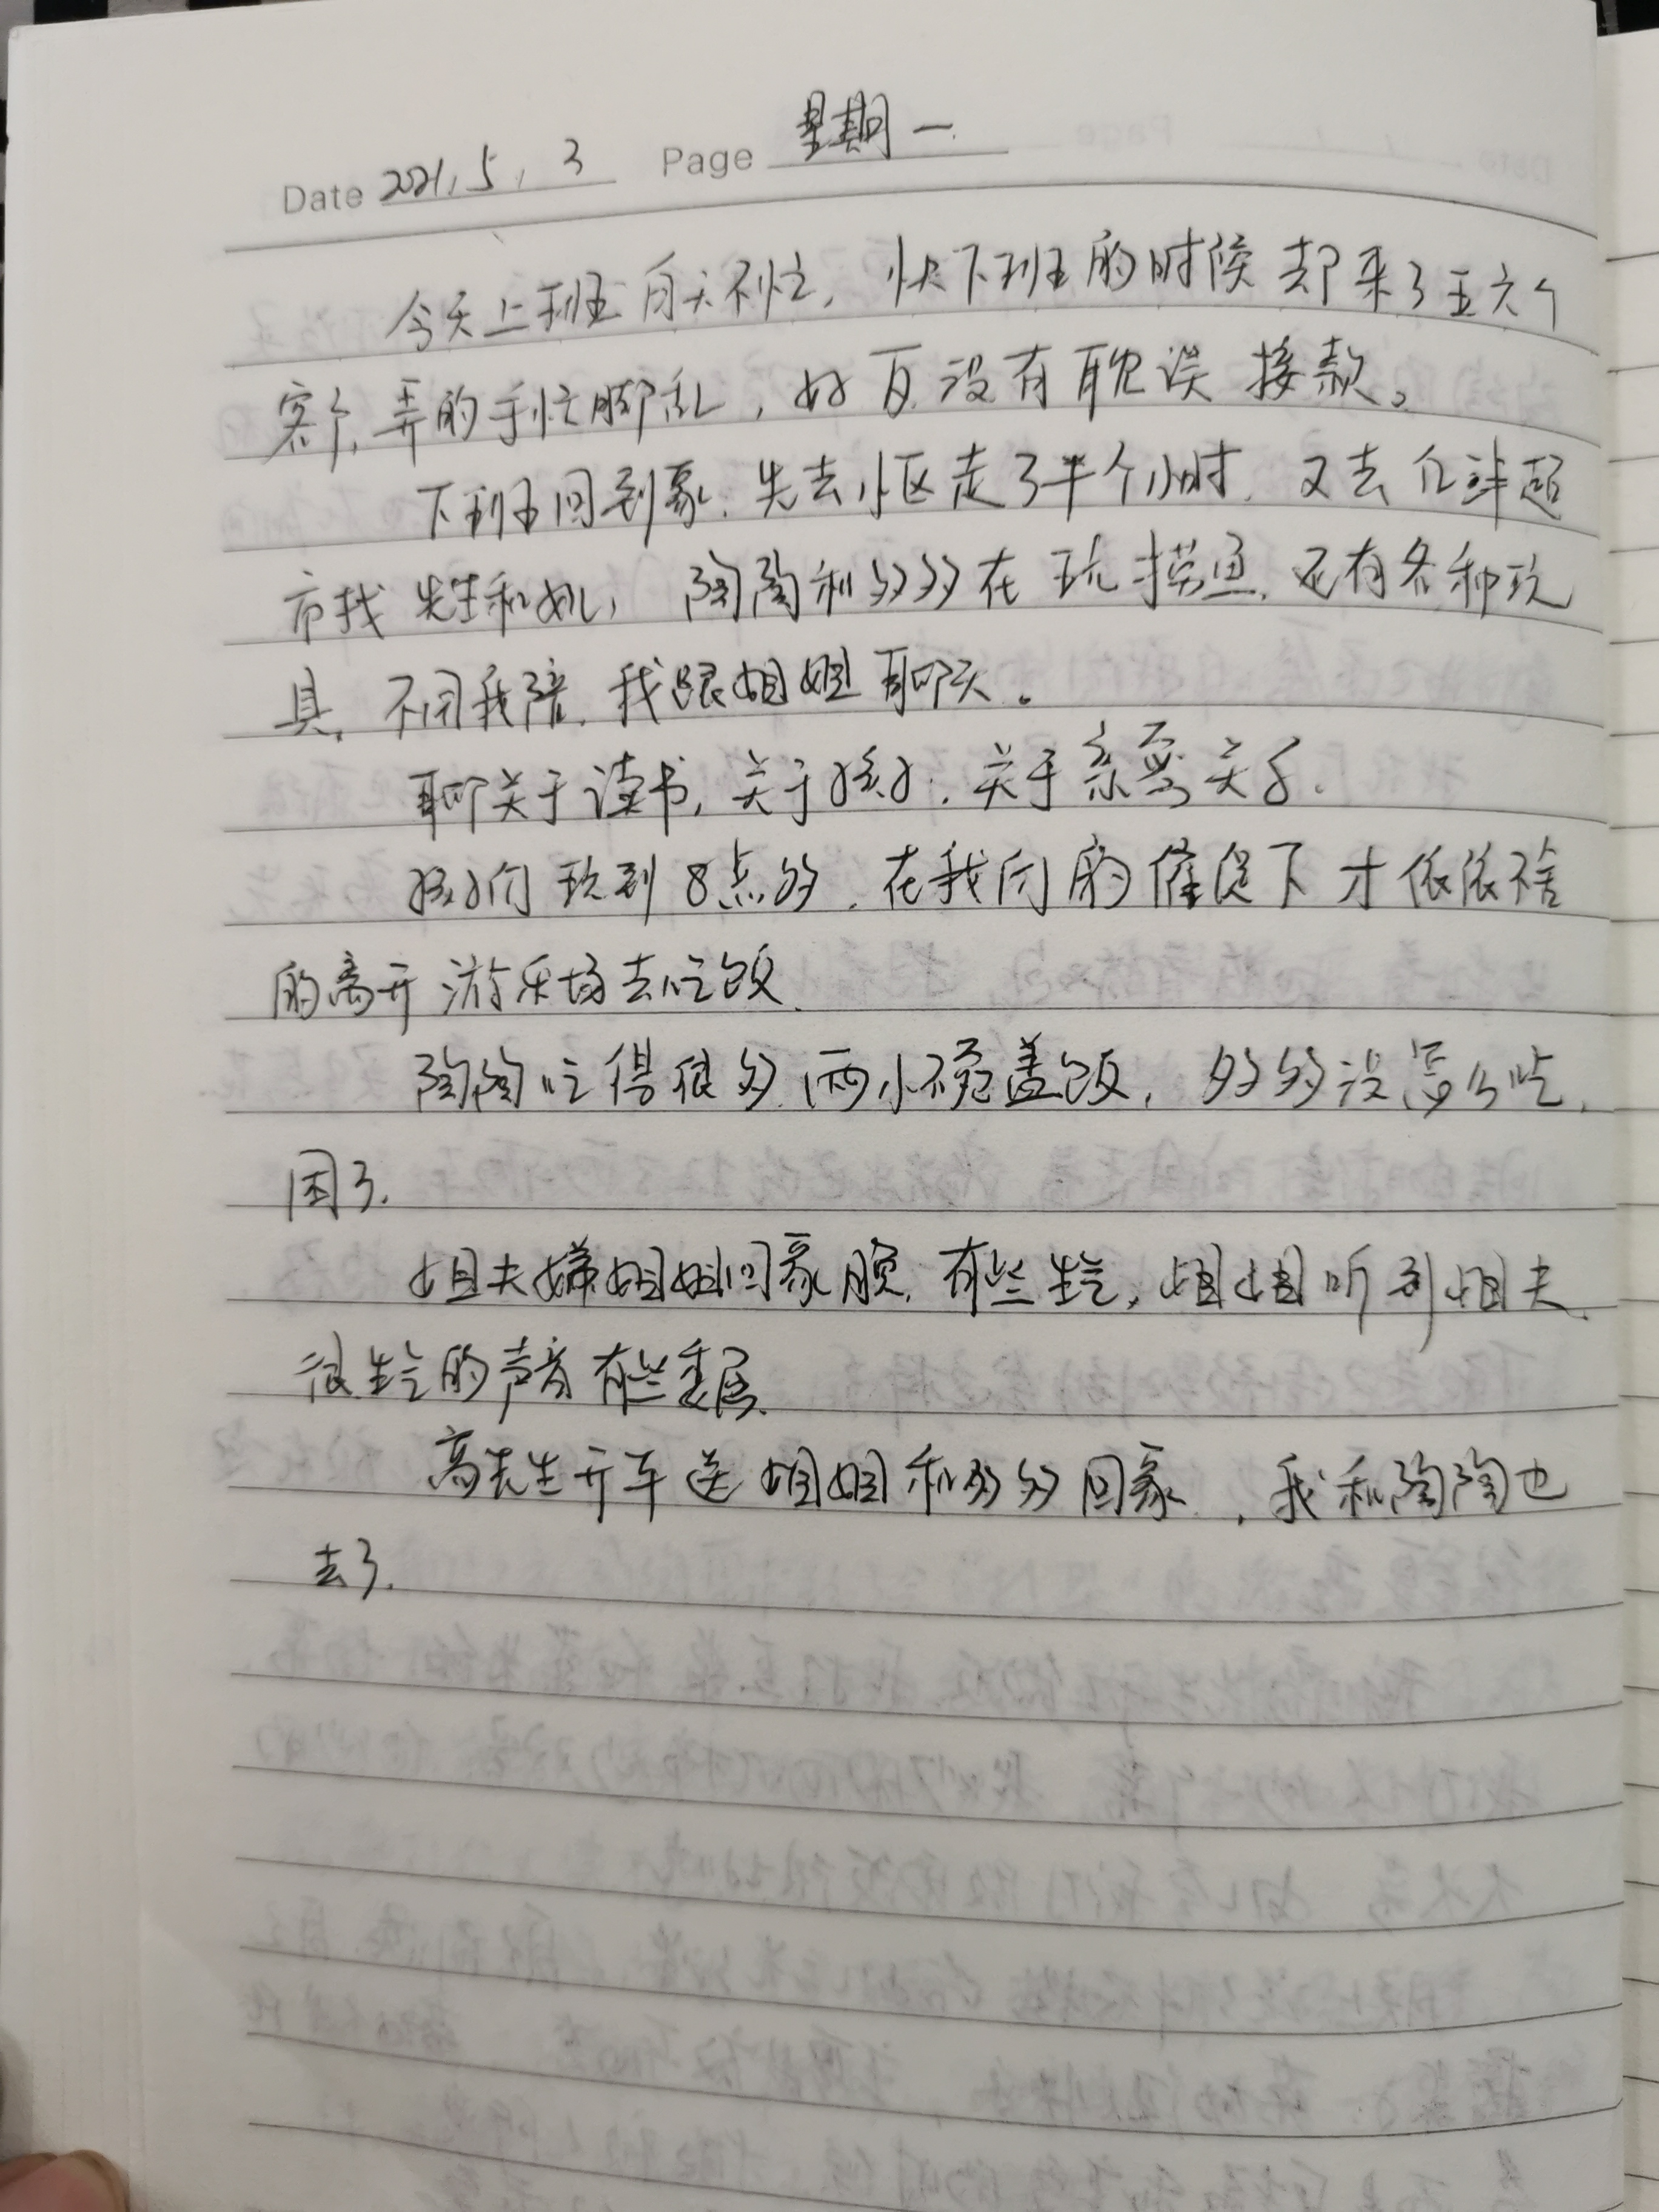 Date 2021.5.3 Page 星期一
今天上班白天不忙，快下班的时候却来了五六个
客户，弄的手忙脚乱，好在没有耽误接款。
下班回到家，先去小区走了半个小时，又去 超
市找先生和她，陶陶和多多在玩捞鱼，还有各种玩
具，不用我陪，我跟姐姐聊天。
聊关于读书，关于孩子，关于亲密关系。
孩子们玩到8点多，在我们的催促下才依依不舍
的离开游乐场去吃饭。
陶陶吃得很多，两小碗盖饭，多多没怎么吃，
困了。
姐夫嫌姐姐回家晚，有些生气，姐姐听到姐夫
很生气的声音有些委屈。
高先生开车送姐姐和多多回家，我和陶陶也
去了。